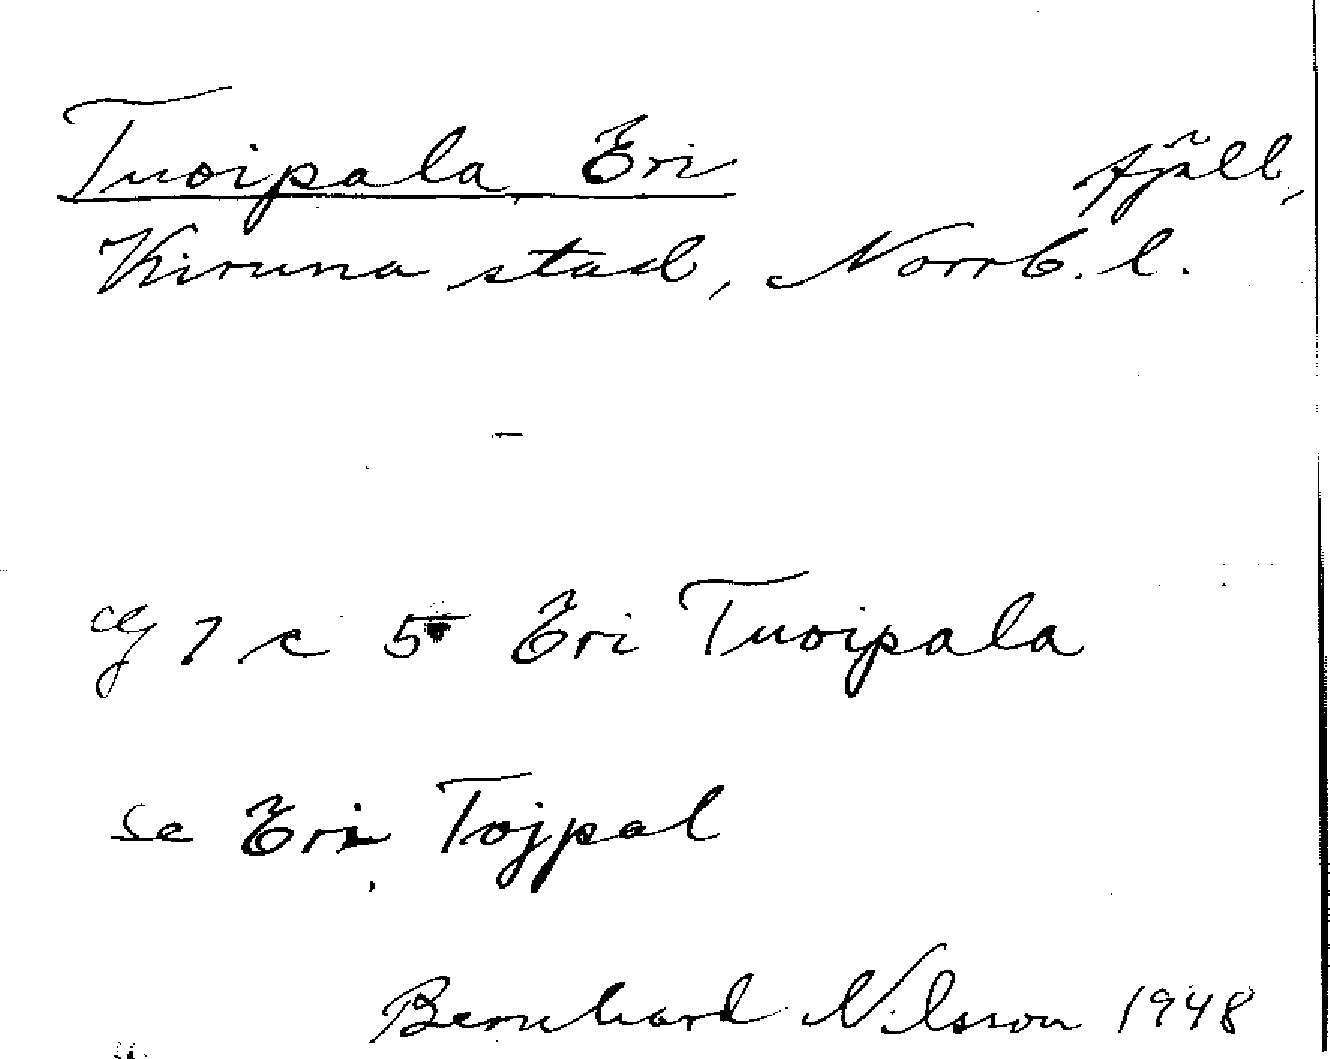 Tuoipala, Eri fjäll,
Kiruna stad, Norrb. l.
-
eg 7 c 5 Eri Tuoipala
Se Eri Tojpal
Bernhard Nilsson 1948